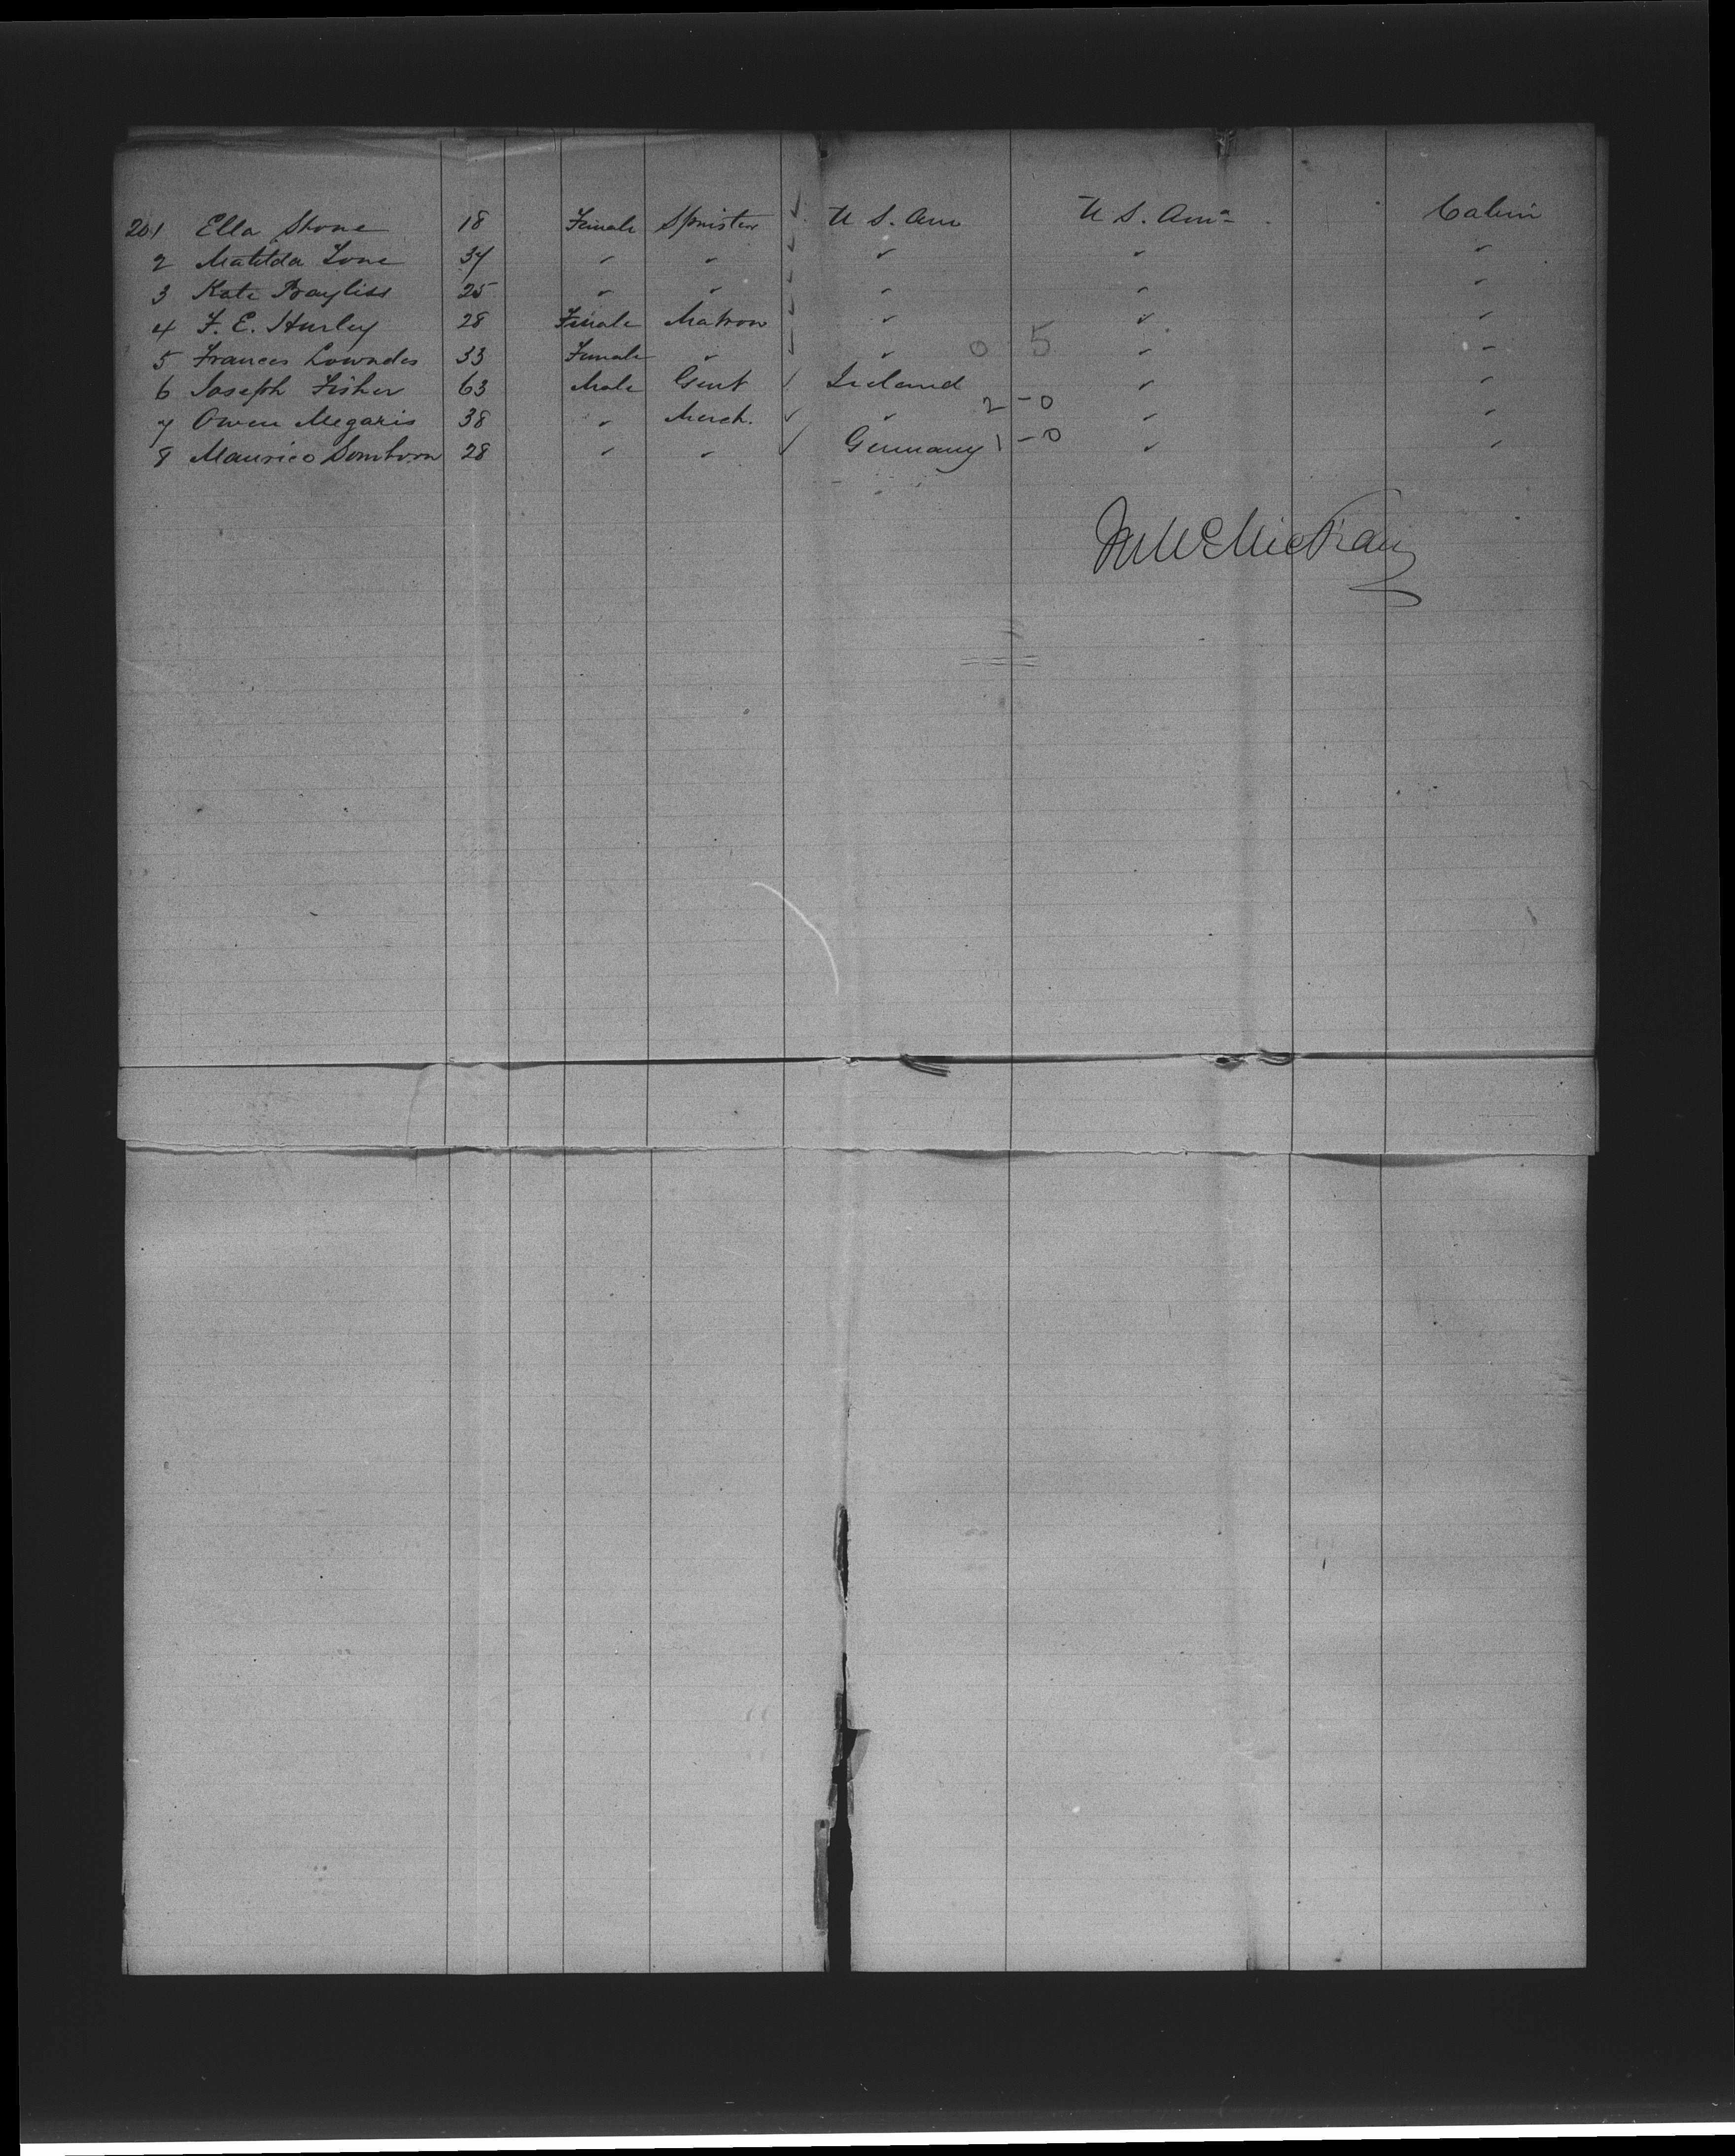 201 Ella Stone 18 Female Spinster U. S. Am U. S. Ama Cabin
2 Matilda Lone 34 " " " " "
3 Kate Bayliss 25 " " " " "
4 F. E. Hurley 28 Female Matron " " "
5 Frances Lowndes 33 Female " " 0 5 " "
6 Joseph Fisher 63 Male Gent Ireland " "
7 Owen Megaris 38 " Merch. " 2 - 0 " "
8 Maurice Somborn 28 " " Germany 1 - 0 " "